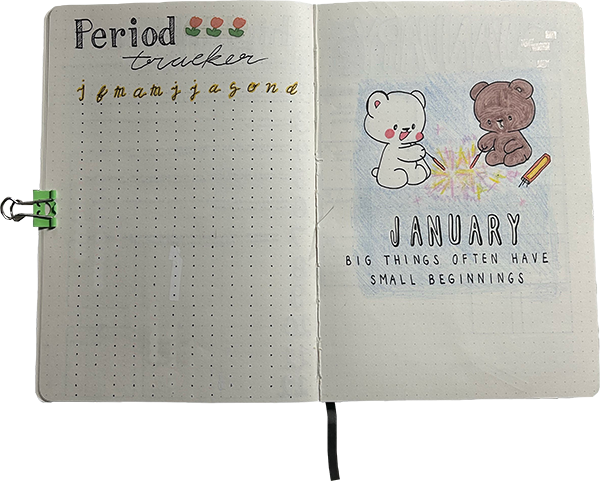 Period
tracker
j f m a m j j a s o n d
JANUARY
BIG THINGS OFTEN HAVE
SMALL BEGINNINGS